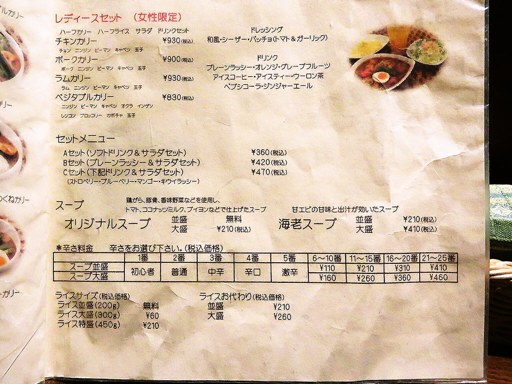 レディースセット （女性限定）
ハーフカリー ハーフライス サラダ ドリンクセット
チキンカリー ¥930(税込)
チキン ニンジン ピーマン キャベツ 玉子
ポークカリー ¥900(税込)
ポーク ニンジン ピーマン キャベツ 玉子
ラムカリー ¥930(税込)
ラム ニンジン ピーマン キャベツ 玉子
ベジタブルカリー ¥830(税込)
ニンジン ピーマン キャベツ オクラ インゲン
レンコン ブロッコリー カボチャ 玉子
ドレッシング
和風・シーザー・パッチョ(トマト＆ガーリック)
ドリンク
プレーンラッシー・オレンジ・グレープフルーツ
アイスコーヒー・アイスティー・ウーロン茶
ペプシコーラ・ジンジャーエール
セットメニュー
Aセット(ソフトドリンク＆サラダセット) ¥360(税込)
Bセット(プレーンラッシー＆サラダセット) ¥420(税込)
Cセット(下記ドリンク＆サラダセット) ¥470(税込)
(ストロベリー・ブルーベリー・マンゴー・キウイラッシー)
スープ
鶏がら、豚骨、香味野菜などを使用し、
トマト、ココナッツミルク、ブイヨンなどで仕上げたスープ
オリジナルスープ 並盛 無料
大盛 ¥210(税込)
甘エビの甘味と出汁が効いたスープ
海老スープ 並盛 ¥210(税込)
大盛 ¥410(税込)
＊辛さ料金 辛さをお選び下さい。(税込価格)
1番 2番 3番 4番 5番 6～10番 11～15番 16～20番 21～25番
スープ並盛 初心者 普通 中辛 辛口 激辛 ¥110 ¥210 ¥310 ¥410
スープ大盛 ¥160 ¥260 ¥360 ¥460
ライスサイズ(税込価格)
ライス並盛(200g) 無料
ライス大盛(300g) ¥60
ライス特盛(450g) ¥210
ライスお代わり(税込価格)
並盛 ¥210
大盛 ¥260
くねカリー